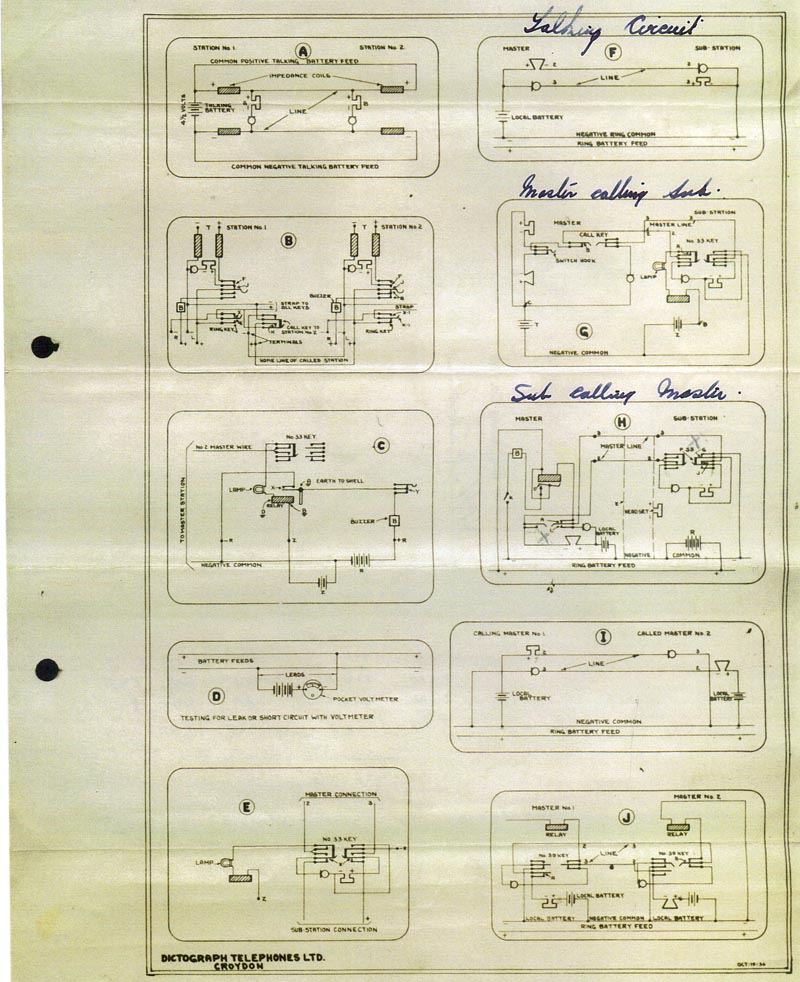 Talking Circuit
STATION No 1. A STATION No 2.
COMMON POSITIVE TALKING BATTERY FEED
IMPEDANCE COILS
4½ VOLTS
TALKING BATTERY
B
LINE
COMMON NEGATIVE TALKING BATTERY FEED
MASTER F SUB-STATION
LINE
LOCAL BATTERY
NEGATIVE RING COMMON
RING BATTERY FEED
Master calling Sub.
T STATION No.1 B T STATION No.2
BUZZER
STRAP TO ALL KEYS
STRAP
RING KEY
CALL KEY TO STATION No 2
RING KEY
TERMINALS
HOME LINE OF CALLED STATION
SUB-STATION
MASTER
MASTER LINE
CALL KEY
No 33 KEY
SWITCH HOOK
LAMP
T
G
Z
NEGATIVE COMMON
Sub calling Master.
C
No 33 KEY
No 2 MASTER WIRE
LAMP
EARTH TO SHELL
RELAY
TO MASTER STATION
BUZZER B
NEGATIVE COMMON
MASTER H SUB-STATION
MASTER LINE
HEADSET
LOCAL BATTERY
NEGATIVE COMMON
RING BATTERY FEED
BATTERY FEEDS
LEADS
D
POCKET VOLTMETER
TESTING FOR LEAK OR SHORT CIRCUIT WITH VOLTMETER
CALLING MASTER No 1 I CALLED MASTER No 2
LINE
LOCAL BATTERY LOCAL BATTERY
NEGATIVE COMMON
RING BATTERY FEED
E
MASTER CONNECTION
2 3
No 33 KEY
LAMP
Z
SUB-STATION CONNECTION
MASTER No 2
MASTER No 1
J
RELAY RELAY
No 39 KEY LINE No 39 KEY
LOCAL BATTERY
LOCAL BATTERY NEGATIVE COMMON LOCAL BATTERY
RING BATTERY FEED
DICTOGRAPH TELEPHONES LTD.
CROYDON
OCT-19-36